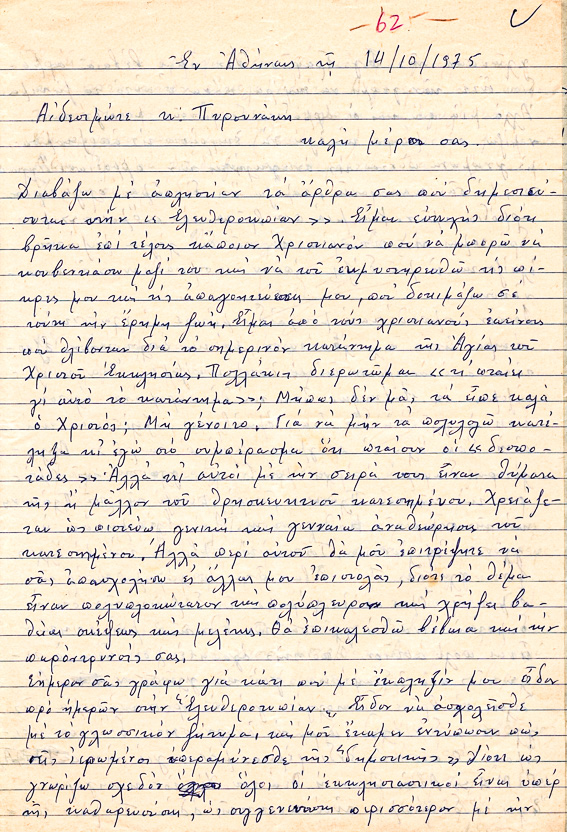 62
Ἐν Ἀθήναις τῇ 14/10/1975
Αἰδεσιμώτατε κ. Πυρουνάκη
καλή μέρα σας.
Διαβάζω μέ ἀπληστίαν τά ἄρθρα σας πού δημοσιεύ-
ονται στήν «Ἐλευθεροτυπίαν». Εἶμαι εὐτυχής διότι
βρῆκα ἐπί τέλους κάποιον Χριστιανόν πού νά μπορῶ νά
κουβεντιάσω μαζί του καί νά τοῦ ἐκμυστηρευθῶ τίς πί-
κρες μου καί τίς ἀπογοητεύσεις μου, πού δοκιμάζω σέ
τούτη τήν ἔρημη ζωή. Εἶμαι ἀπό τούς χριστιανούς ἐκείνους
πού θλίβονται διά τό σημερινόν κατάντημα τῆς Ἁγίας τοῦ
Χριστοῦ Ἐκκλησίας. Πολλάκις διερωτῶμαι «τί πταίει
γι αὐτό τό κατάντημα»; Μήπως δέν μᾶς τά εἶπε καλά
ὁ Χριστός; Μή γένοιτο. Γιά νά μήν τά πολυλογῶ κατέ-
ληξα κι ἐγώ στό συμπέρασμα ὅτι πταίουν οἱ «δεσπο-
τάδες». Ἀλλά κι αὐτοί μέ τήν σειρά τους εἶναι θύματα
τῆς ἤ μᾶλλον τοῦ θρησκευτικοῦ κατεστημένου. Χρειάζε-
ται ὡς πιστεύω γενική καί γενναία ἀναθεώρησις τοῦ
κατεστημένου. Ἀλλά περί αὐτοῦ θά μοῦ ἐπιτρέψητε νά
σᾶς ἀπασχολήσω εἰς ἄλλας μου ἐπιστολάς, διότι τό θέμα
εἶναι πολυπλοκώτατον καί πολύπλευρον καί χρήζει βα-
θείας σκέψεως καί μελέτης. Θά ἐπικαλεσθῶ βέβαια καί τήν
παρότρυνσίς σας.
Σήμερον σᾶς γράφω γιά κάτι πού μέ ἔκπληξίν μου εἶδον
πρό ἡμερῶν στήν "Ἐλευθεροτυπίαν". Εἶδον νά ἀσχολεῖσθε
μέ τό γλωσσικόν ζήτημα, καί μοῦ ἔκαμεν ἐντύπωσιν πώς
σεῖς ἱερωμένος ὑπεραμύνεσθε τῆς "δημοτικῆς", διότι ὡς
γνωρίζω σχεδόν ὅλοι οἱ ἐκκλησιαστικοί εἶναι ὑπέρ
τῆς καθαρευούσης, ὡς συγγενευούσης περισσότερον μέ τήν